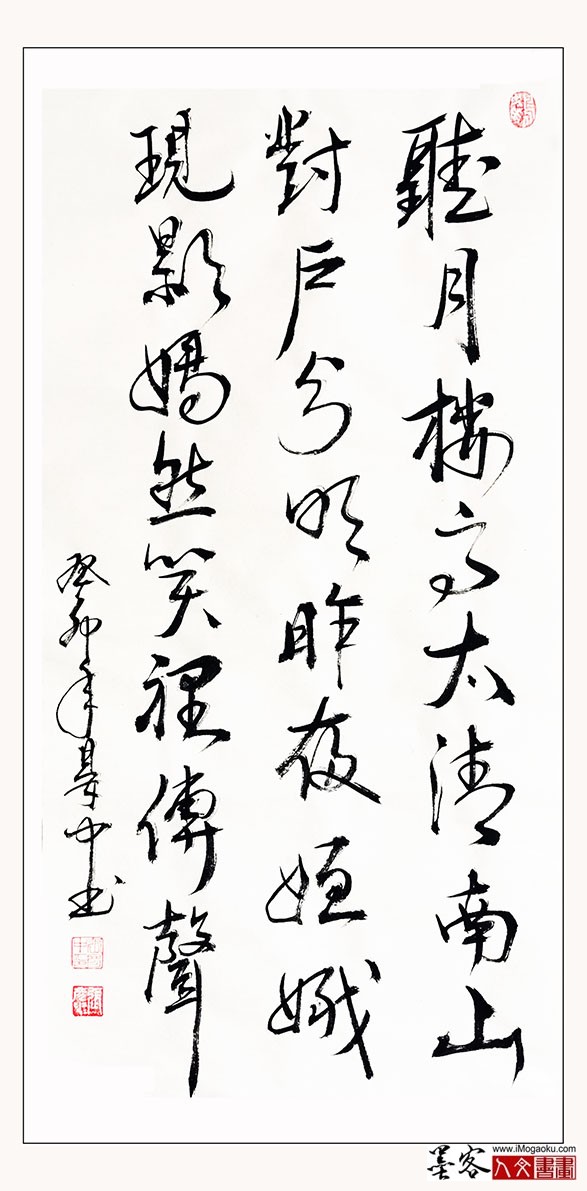 聽月樓高太清南山
對戶分明昨夜姮娥
現影嫣然笑裡傳聲
癸卯年景中书
www.iMogaoku.com
墨客
人文書畫